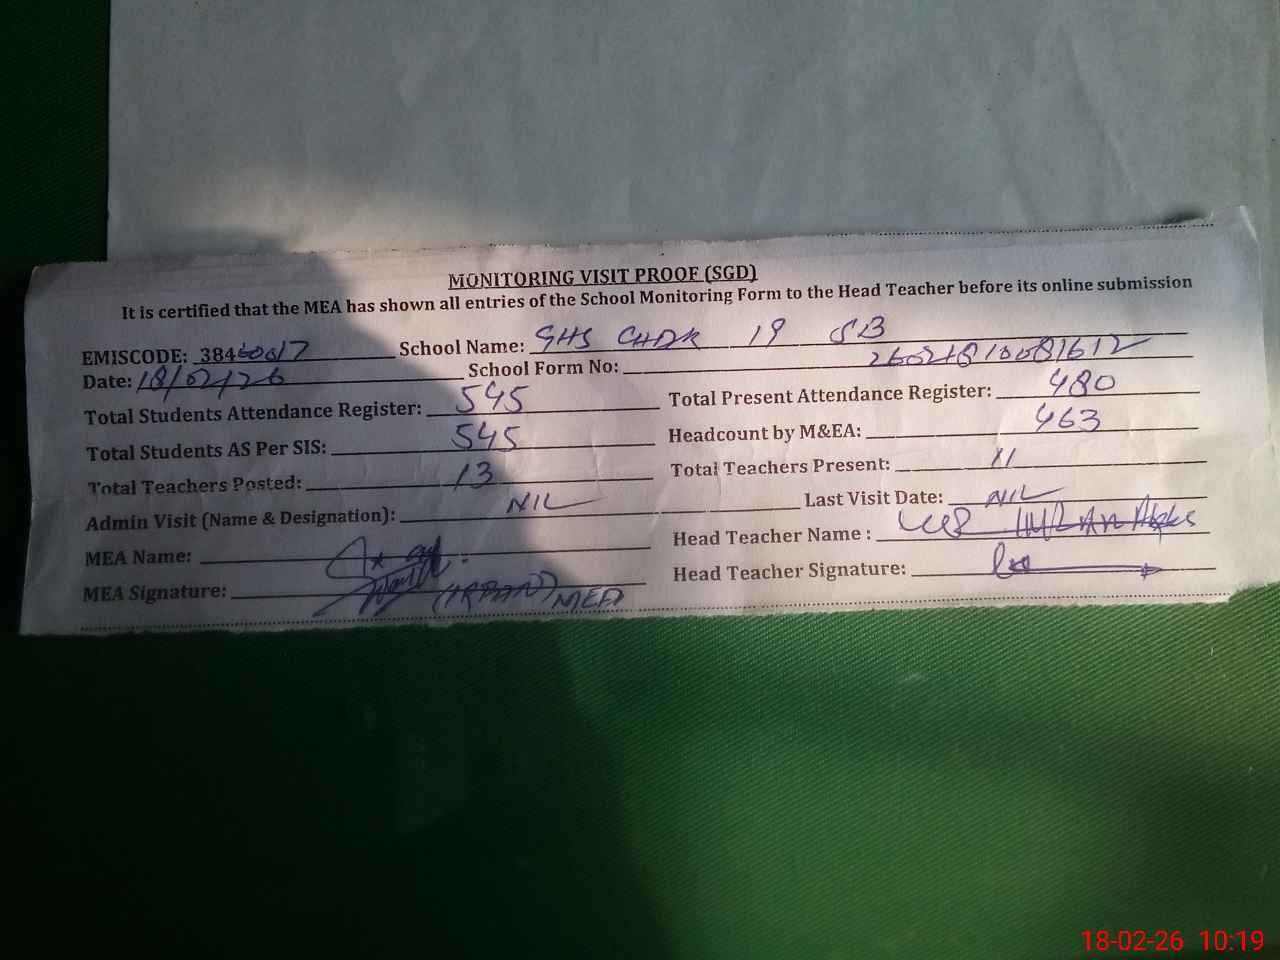 MONITORING VISIT PROOF (SGD)
It is certified that the MEA has shown all entries of the School Monitoring Form to the Head Teacher before its online submission
EMISCODE: 38460017 School Name: GHS CHAK 19 SB
Date: 18/02/26 School Form No:
Total Students Attendance Register: 545 Total Present Attendance Register: 480
Total Students AS Per SIS: 545 Headcount by M&EA: 463
Total Teachers Posted: 13 Total Teachers Present: 11
Admin Visit (Name & Designation): NIL Last Visit Date: NIL
MEA Name: Head Teacher Name :
MEA Signature: (IRFAN) MEA Head Teacher Signature:
18-02-26 10:19